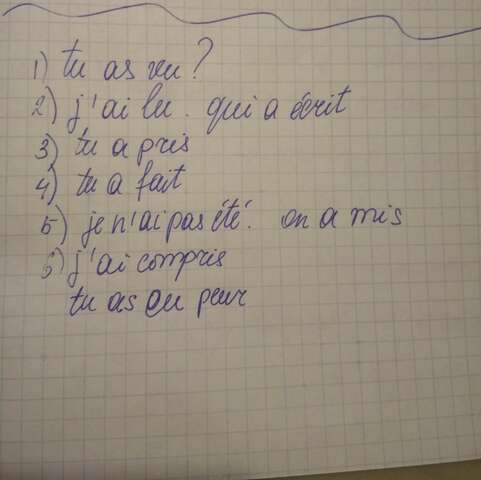 1) tu as vu?
2) j'ai lu. qui a écrit
3) tu a pris
4) tu a fait
5) je n'ai pas été. on a mis
6) j'ai compris
tu as eu peur